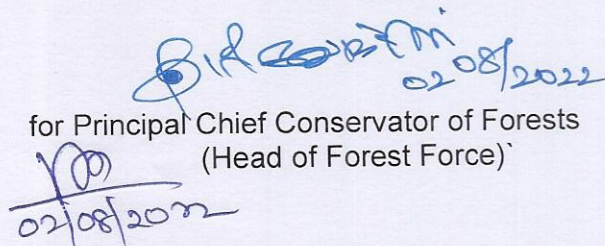 02/08/2022
for Principal Chief Conservator of Forests
(Head of Forest Force)`
02/08/2022